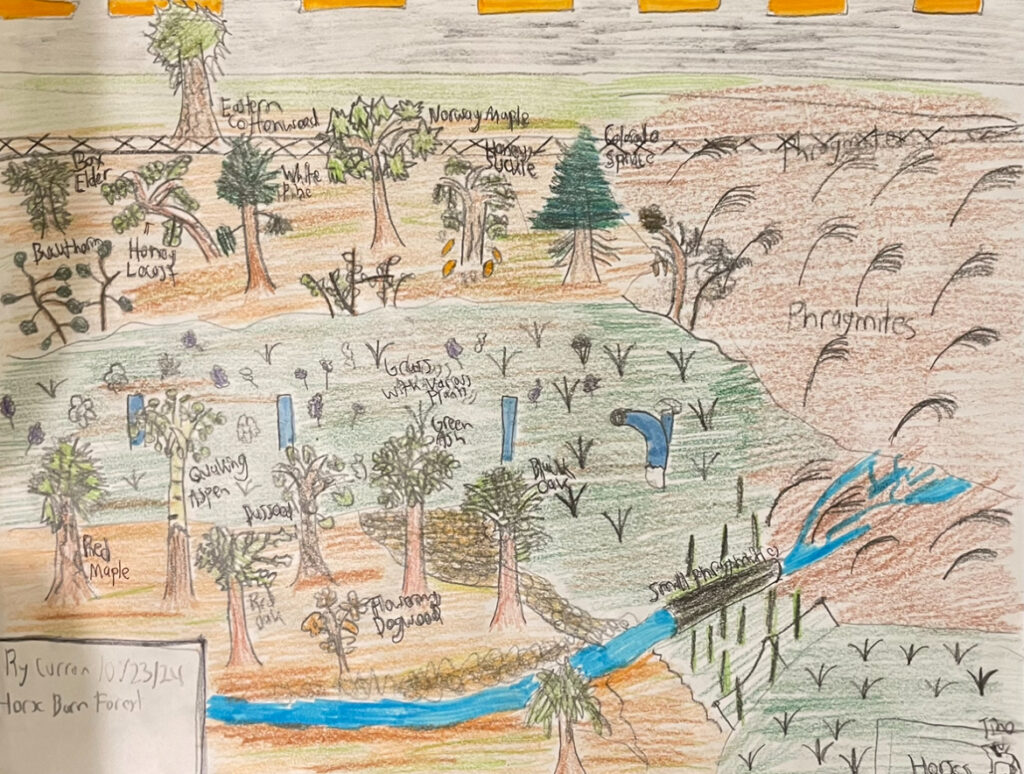 Eastern
Cottonwood
Norway Maple
Colorado
Spruce
Phragmites
Box
Elder
White
Pine
Honey
Honey
Locost
Phragmites
Grass
With Varous
Plants
Green
Ash
Quaking
Aspen
Black
Oak
Red
Maple
Red
Oak
Flowering
Dogwood
Small Phragmites
Ry Curran 10/23/24
Forest